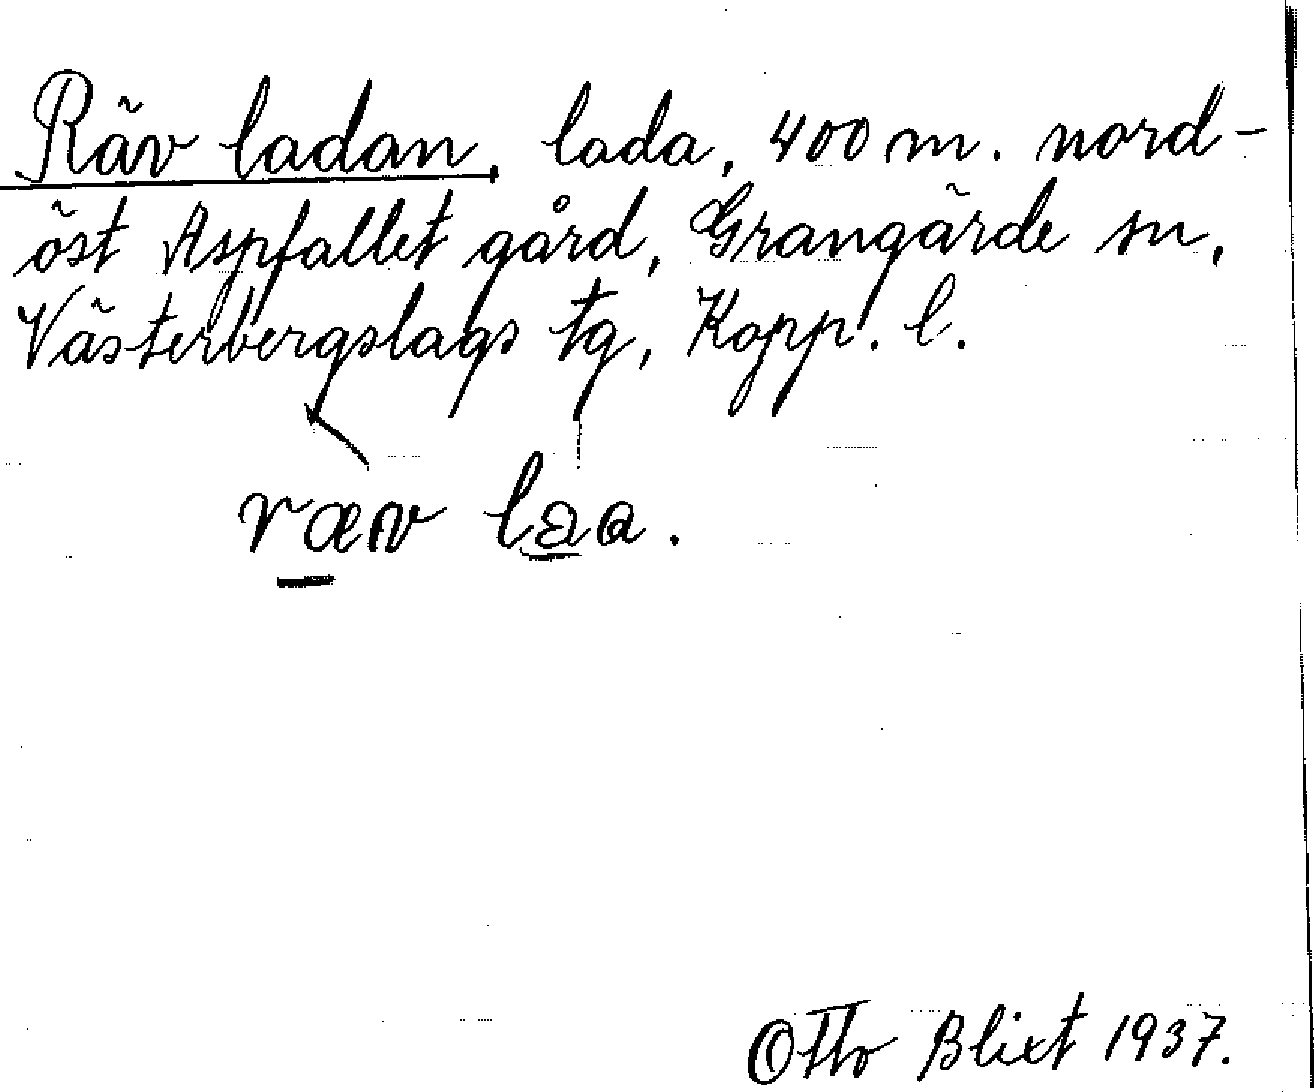 Räv ladan, lada, 400 m. nord-
öst Aspfallet gård, Grangärde sn,
Västerbergslags tg, Kopp. l.
ræv laa.
Otto Blixt 1937.